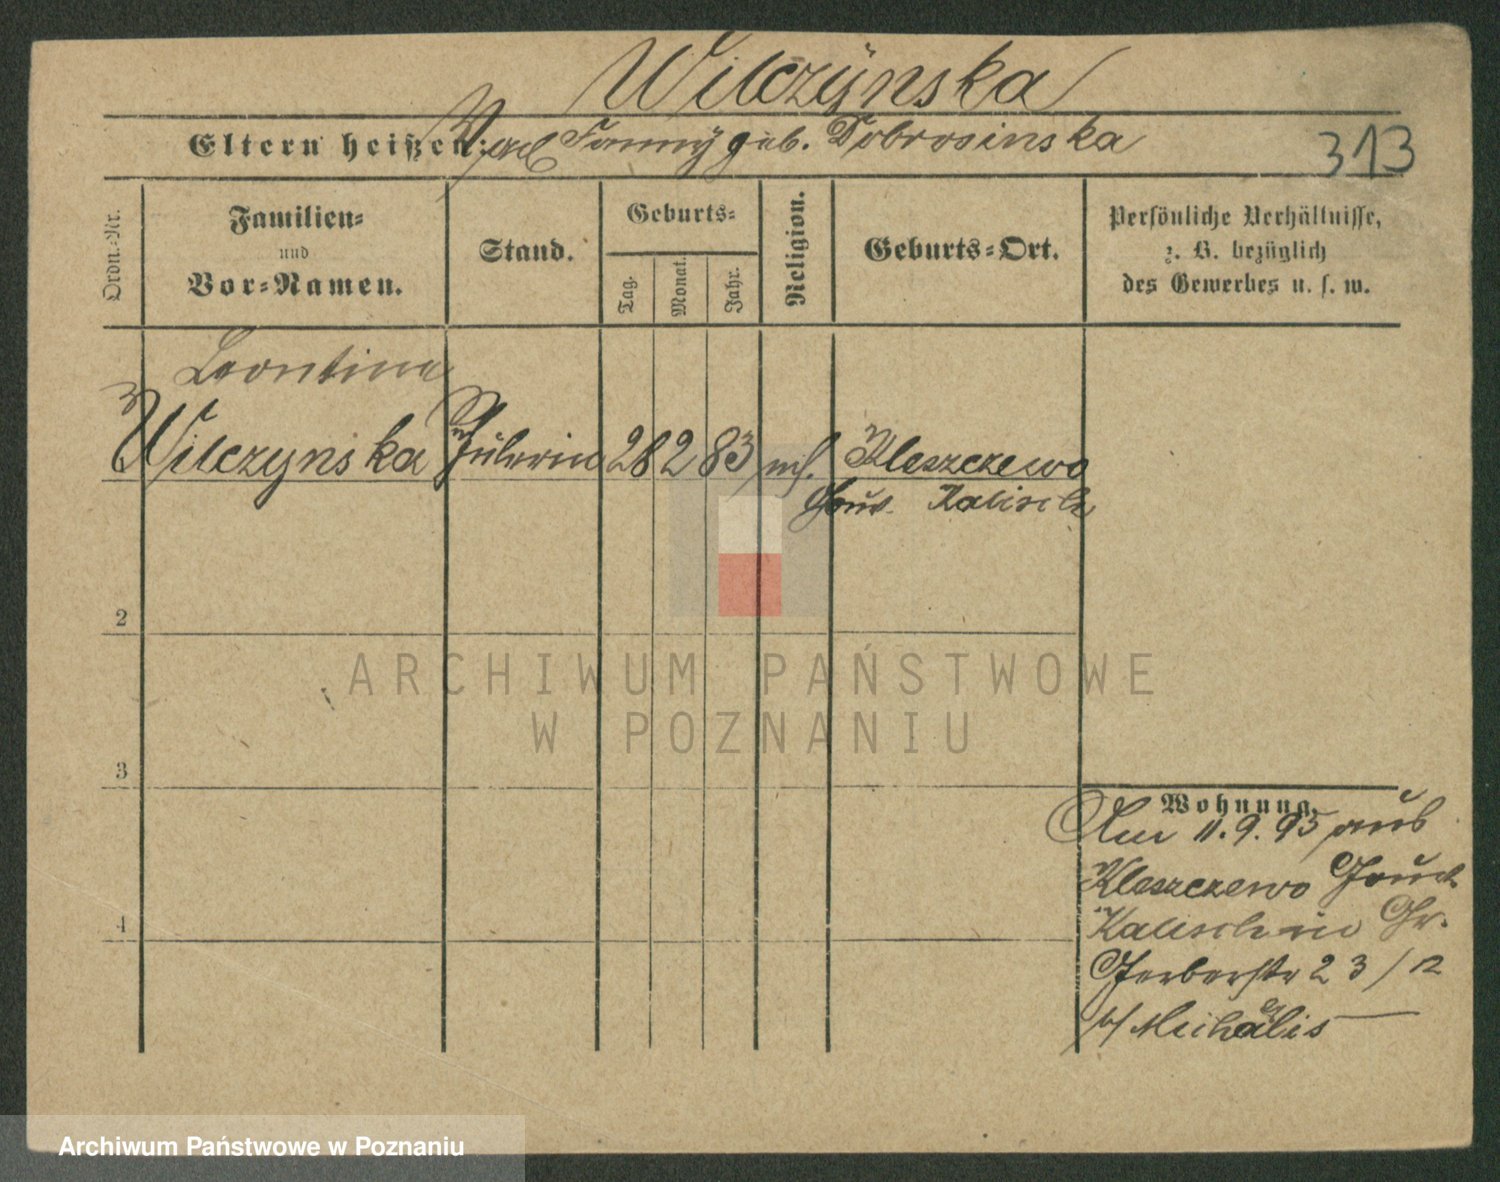 Wilczÿnska
Eltern heißen: Fannÿ geb. Dobrosinska
313
Ordn.-Nr.
Familien-
und
Vor-Namen.
Stand.
Geburts-
Tag.
Monat.
Jahr.
Religion.
Geburts-Ort.
Persönliche Verhältnisse,
z. B. bezüglich
des Gewerbes u. s. w.
Leontine
Wilczynska Schülerin 28 2 83 Kleszczewo
Gouv. Kalisch
2
3
4
Wohnung.
Am 11.9.95 aus
Kleszczewo Gouv.
Kalisch in Gr.
Gerberstr 23/
b/ Michalis
ARCHIWUM PAŃSTWOWE
W POZNANIU
Archiwum Państwowe w Poznaniu